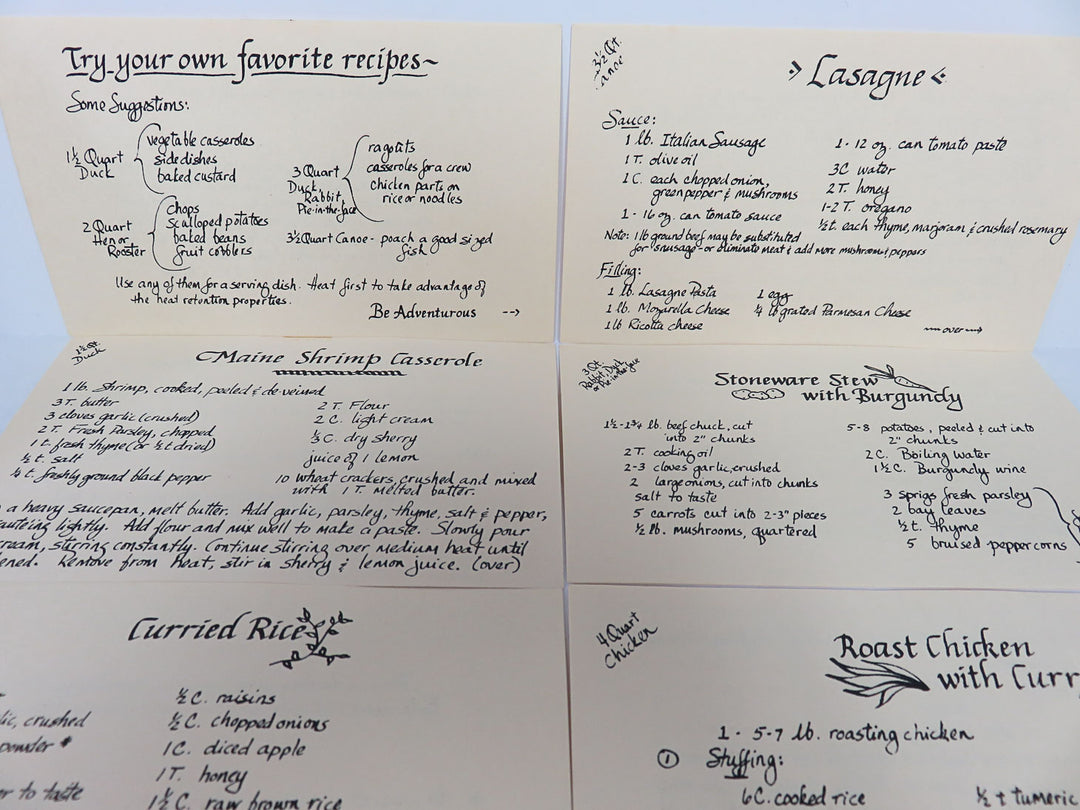 Try your own favorite recipes~
Some Suggestions:
1½ Quart Duck
vegetable casseroles
side dishes
baked custard
2 Quart
Hen or
Rooster
chops
scalloped potatoes
baked beans
fruit cobblers
3 Quart
Duck,
Rabbit,
Pie-in-the-face
ragoûts
casseroles for a crew
chicken parts on
rice or noodles
3½ Quart Canoe - poach a good sized
fish
Use any of them for a serving dish. Heat first to take advantage of
the heat retention properties.
Be Adventurous -->
3½ Qt.
Canoe
Lasagne
Sauce:
1 lb. Italian Sausage
1 T. olive oil
1 C. each chopped onion,
green pepper & mushrooms
1 - 16 oz. can tomato sauce
1 - 12 oz. can tomato paste
3 C water
2 T. honey
1-2 T. oregano
½ t. each thyme, marjoram & crushed rosemary
Note: 1 lb ground beef may be substituted
for snusage - or eliminate meat & add more mushrooms & peppers
Filling:
1 lb. Lasagne Pasta
1 lb. Mozarella Cheese
1 lb Ricotta cheese
1 egg
¼ lb grated Parmesan Cheese
over
1½ Qt.
Duck
Maine Shrimp Casserole
1 lb. Shrimp, cooked, peeled & de-veined
3 T. butter
3 cloves garlic (crushed)
2 T. Fresh Parsley, chopped
1 t. fresh thyme (or ½ t dried)
½ t. salt
¼ t. freshly ground black pepper
2 T. Flour
2 C. light cream
⅓ C. dry sherry
juice of 1 lemon
10 wheat crackers, crushed and mixed
with 1 T. melted butter.
a heavy saucepan, melt butter. Add garlic, parsley, thyme, salt & pepper,
auteing lightly. Add flour and mix well to make a paste. Slowly pour
ream, stirring constantly. Continue stirring over medium heat until
ened. Remove from heat, stir in sherry & lemon juice. (over)
3 Qt.
Rabbit, Duck
or Pie-in-the-face
Stoneware Stew
with Burgundy
1½-1¾ lb. beef chuck, cut
into 2" chunks
2 T. cooking oil
2-3 cloves garlic, crushed
2 large onions, cut into chunks
salt to taste
5 carrots cut into 2-3" pieces
½ lb. mushrooms, quartered
5-8 potatoes, peeled & cut into
2" chunks
2 C. Boiling water
1½ C. Burgundy wine
3 sprigs fresh parsley
2 bay leaves
½ t. thyme
5 bruised peppercorns
Curried Rice
lic, crushed
powder *
er to taste
½ C. raisins
½ C. chopped onions
1 C. diced apple
1 T. honey
1½ C. raw brown rice
4 Quart
Chicken
Roast Chicken
with Curr
1 - 5-7 lb. roasting chicken
① Stuffing:
6 C. cooked rice
½ t tumeric